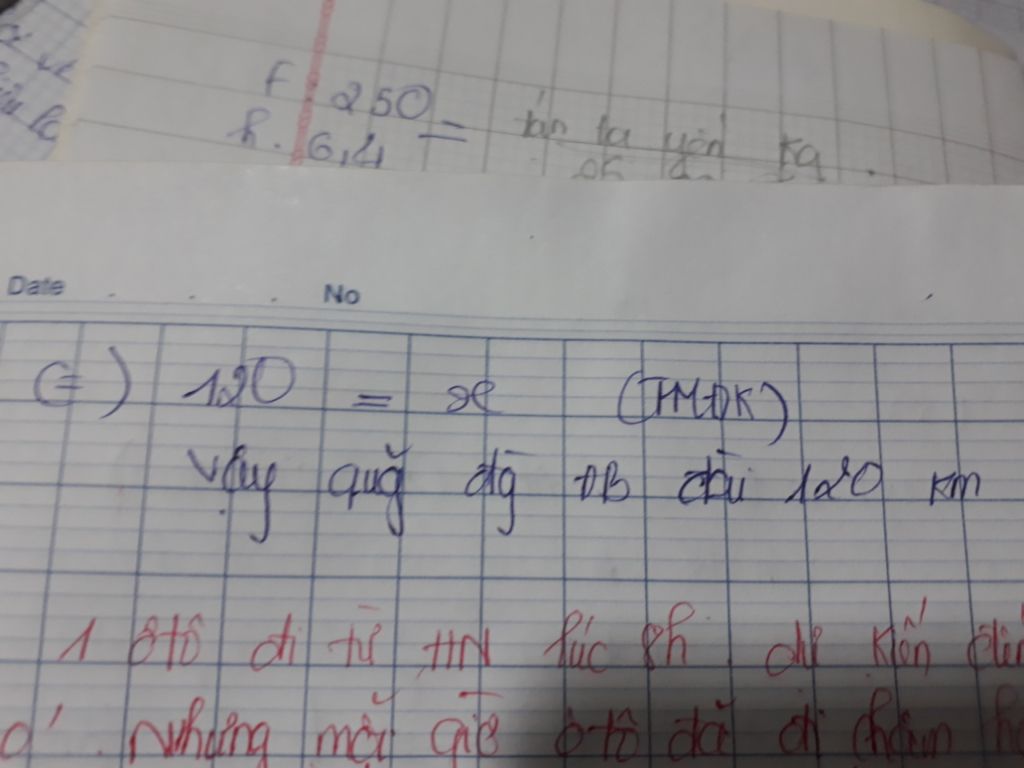 f 250 =
h. 6,4
Date No
(=) 120 = x (TMĐK)
Vậy quãg đg AB dài 120 km
1 ôtô đi từ HN lúc 8h dự kiến
Nhưng mỗi giờ ôtô đã đi chậm